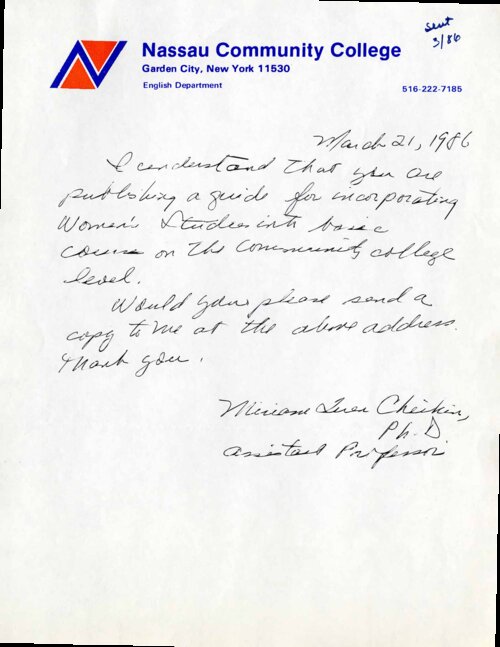 sent
3/86
Nassau Community College
Garden City, New York 11530
English Department
516-222-7185
March 21, 1986
I understand that you are
publishing a guide for incorporating
Women's Studies into basic
courses on the community college
level.
Would you please send a
copy to me at the above address.
Thank you.
Miriam Cheikin,
Ph.D
Assistant Professor